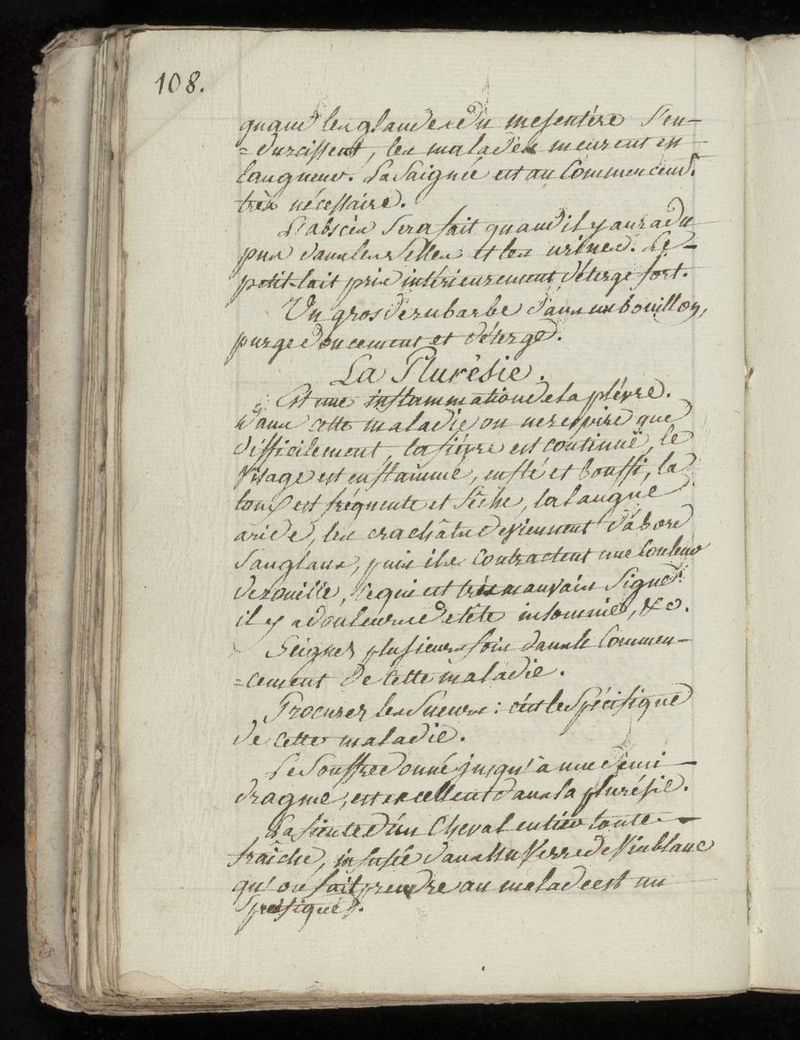 108.
quand les glandes du mesentère s'en-
=durcissent, les malades meurent en
langueur. La Saignée est au Commencemt.
très nécessaire.
L'abscès sera fait quand il y aura du
pus dans les selles et les urines. Le
petit-lait pris intérieurement déterge fort.
Un gros de rubarbe dans un bouillon,
purge doucement et déterge.
La Plurésie.
Est une inflammation de la plévre.
dans cette maladie on ne respire que
difficilement, la fiévre est continuë, le
Visage est enflammé, enflé et bouffi, la
toux est fréquente et séche, la langue
aride, les crachâts deviennent d'abord
Sanglans, puis ils contractent une Couleur
de rouille, ce qui est très mauvais Signe.
il y a douleurs de tête insomnies, &c.
Seignes plusieurs fois dans le Commen-
=cement de Cette maladie.
Procurez les Sueurs : c'est le Spécifique
de cette maladie.
Le Souffre donné jusqu'à une demi
dragme, est excellent dans la plurésie.
La fiente d'un Cheval entier toute
fraîche, infusée dans un Verre de Vin blanc
qu'on fait prendre au malade est un
Spésifique.